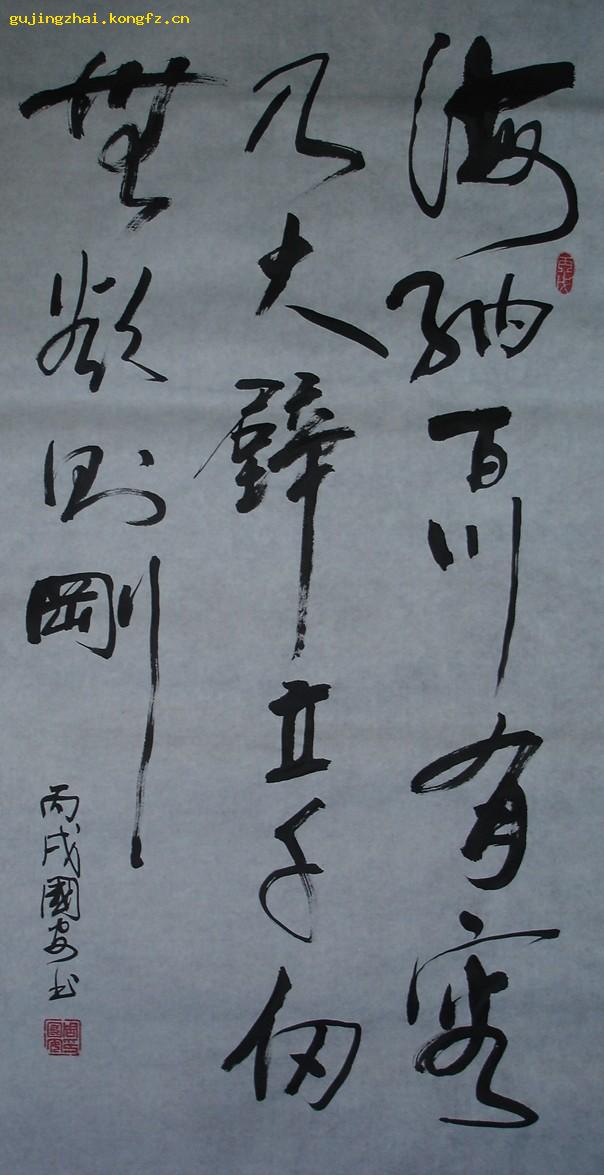 gujingzhai.kongfz.cn
海納百川有容
乃大壁立千仞
無欲則剛
丙戌國安书
丙戌